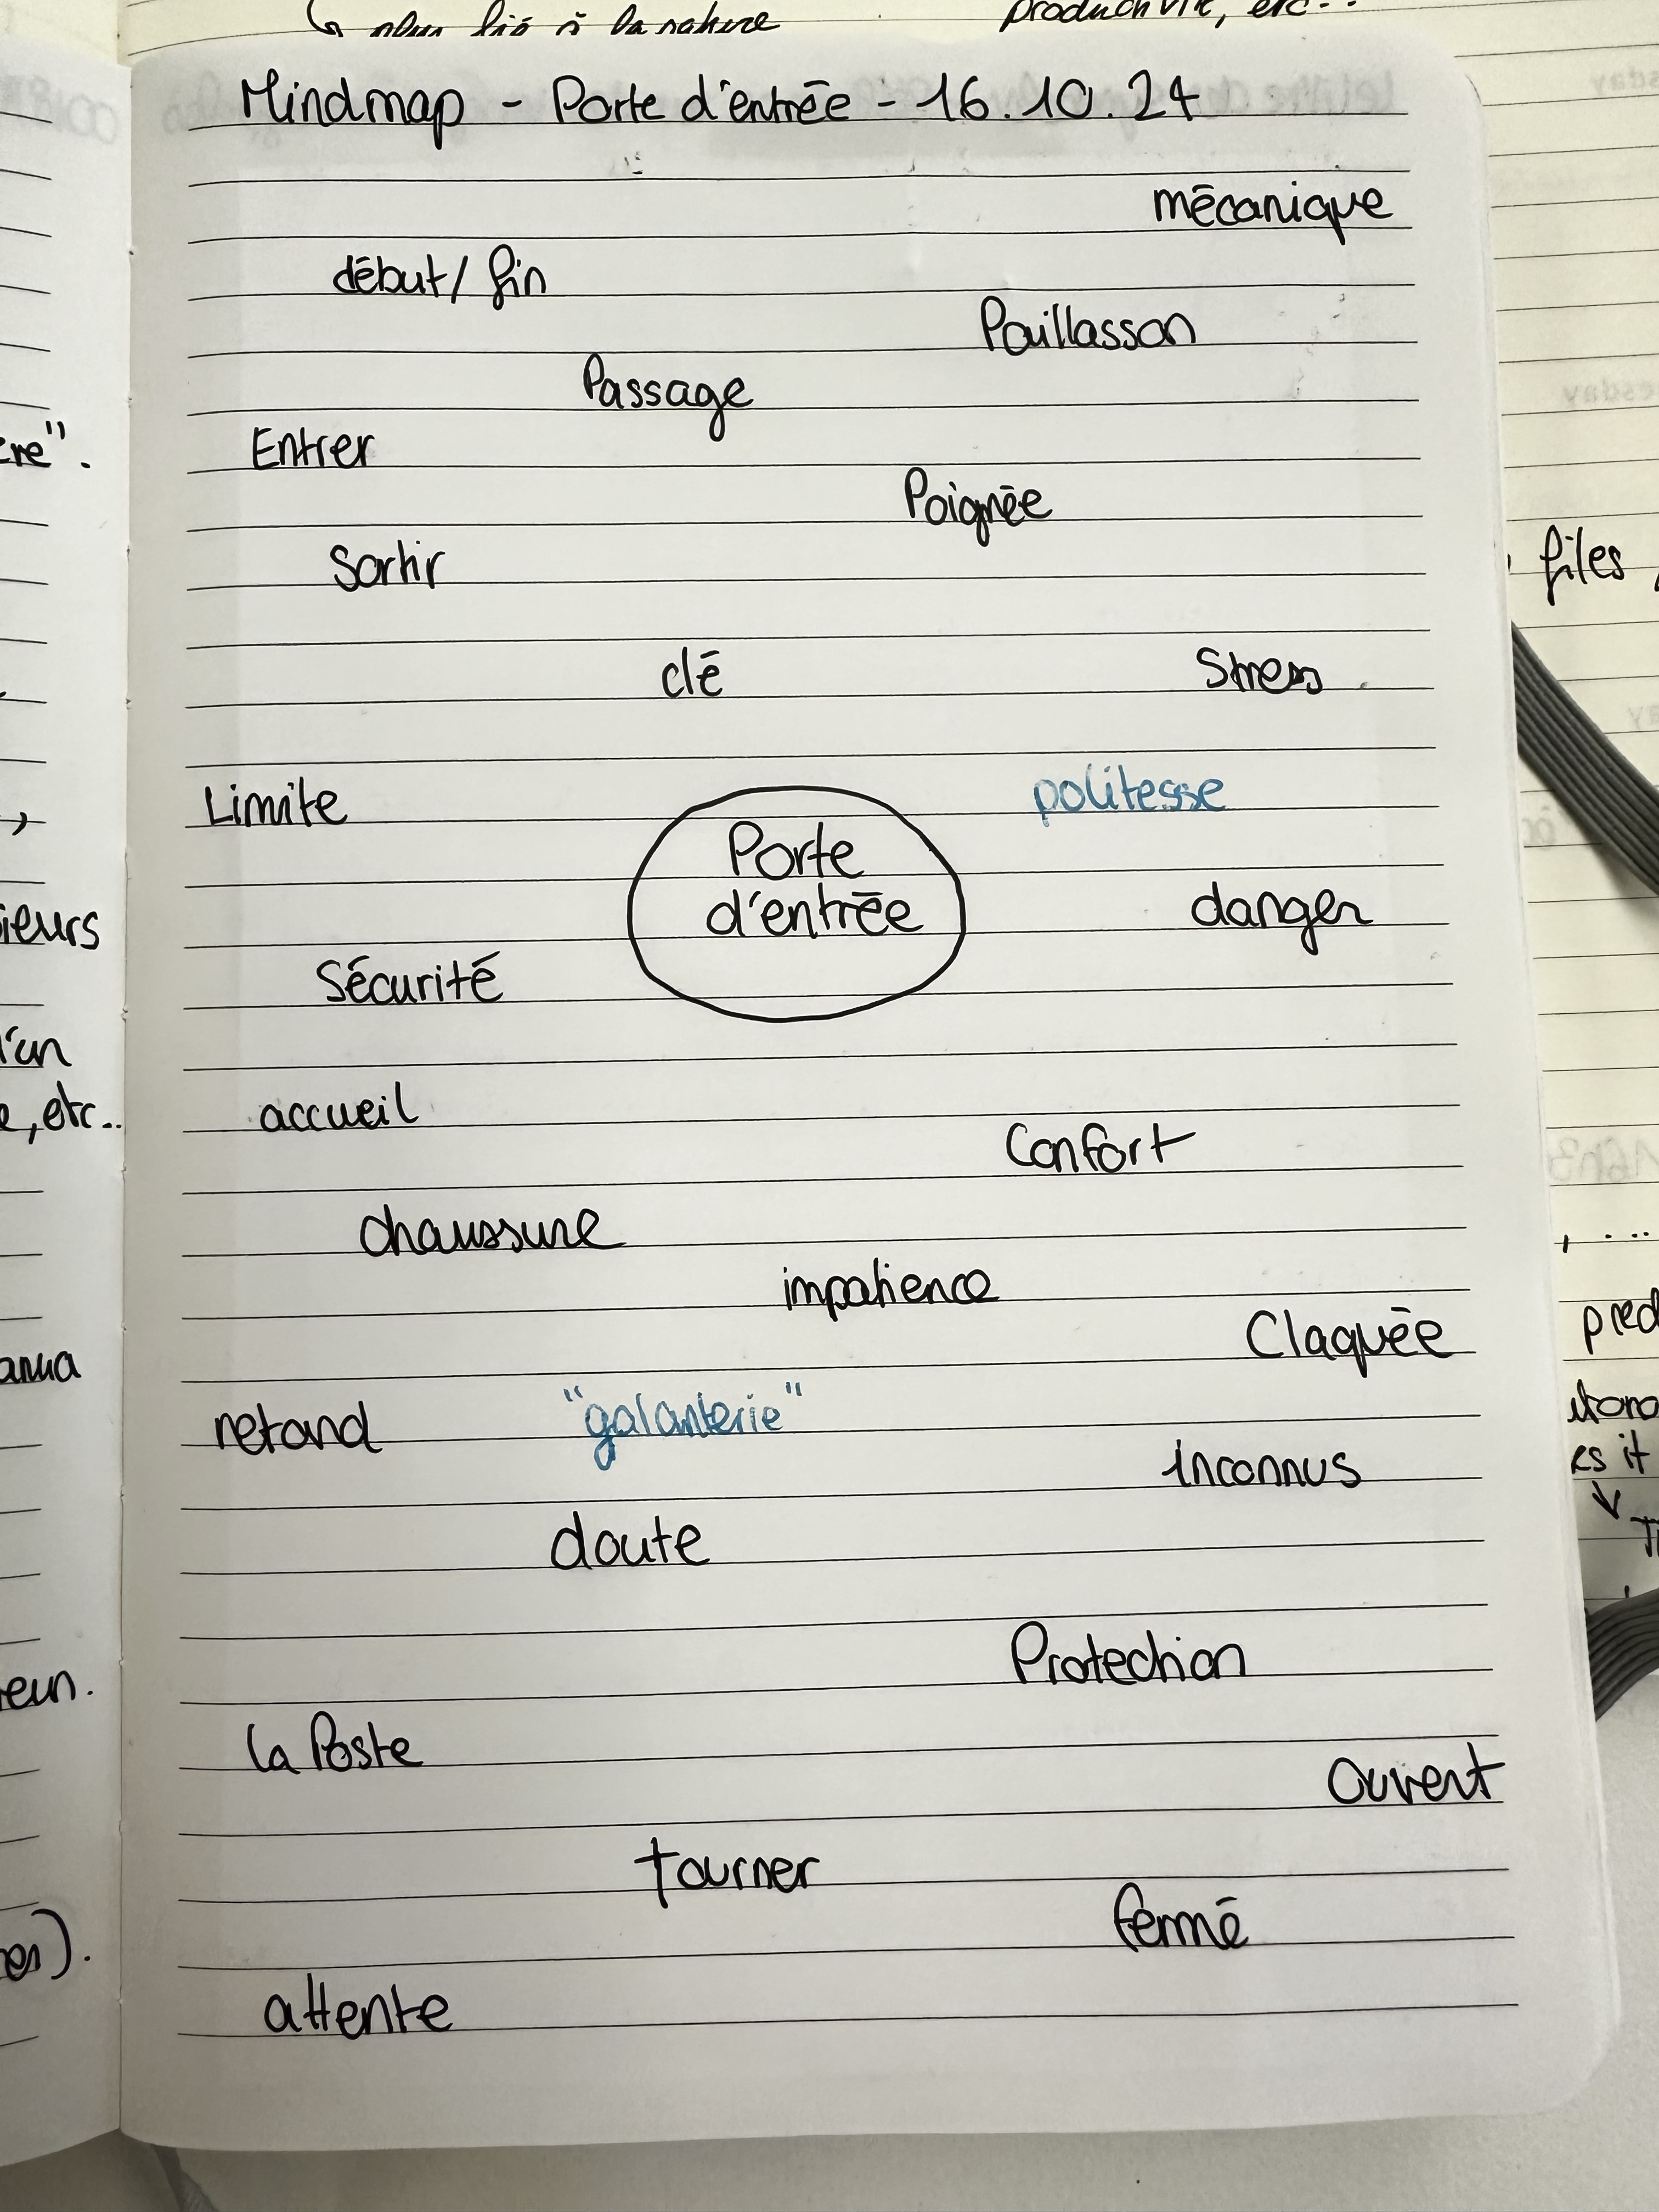 plus lié à la nature
productivité, etc..
Mindmap - Porte d'entrée - 16.10.24
mécanique
début / fin
Paillasson
Passage
Entrer
Poignée
Sortir
clé
Stress
Limite
politesse
Porte
d'entrée
danger
Sécurité
accueil
Confort
chaussure
impatience
Claquée
retard
"galanterie"
inconnus
doute
Protection
la Poste
Ouvert
tourner
fermé
attente
files
es it